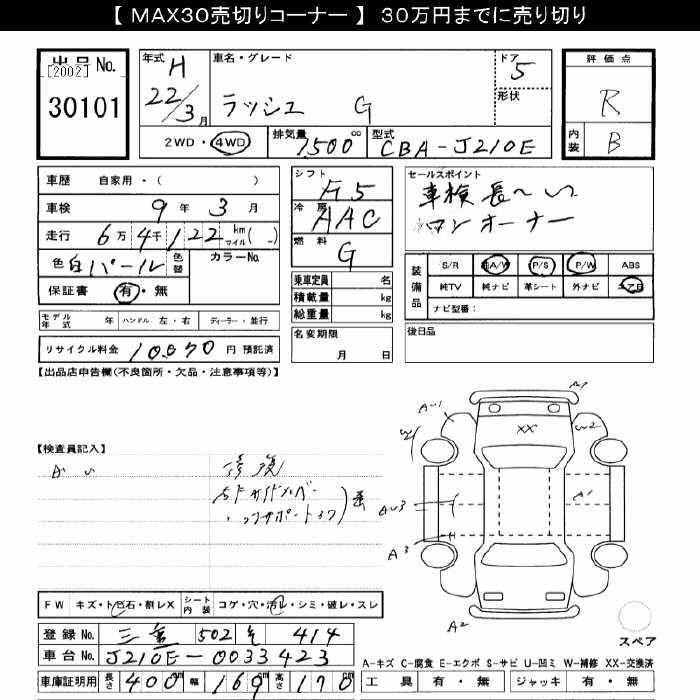 【 MAX30売切りコーナー 】 30万円までに売り切り
出品No.
[2002]
30101
年式 H 22/3月
車名・グレード
ラッシュ G
ドア 5
形状
評価点
R
内装 B
2WD・4WD 排気量 1500cc 型式 CBA-J210E
車歴 自家用・( )
車検 9年 3月
走行 6万4千122 km マイル( - )
色 白パール 色替 カラーNo.
保証書 有・無
モデル年式 年 ハンドル 左・右 ディーラー・並行
リサイクル料金 10070円 預託済
シフト
冷房 AAC
燃料 G
乗車定員 名
積載量 kg
総重量 kg
名変期限
月 日
セールスポイント
ワンオーナー
装備品
S/R 純A/W P/S P/W ABS
純TV 純ナビ 革シート 外ナビ エアB
ナビ型番:
後日品
【出品店申告欄(不良箇所・欠品・注意事項等)】
【検査員記入】
修復
A1
A2
A3
XX
W2
FW キズ・トビ石・割レX シート内装 コゲ・穴・汚レ・シミ・破レ・スレ
登録No. 三重 502 そ 414
車台No. J210E-0033423
車庫証明用 長さ 400cm 幅 169cm 高さ 170cm
スペア
A-キズ C-腐食 E-エクボ S-サビ U-凹ミ W-補修 XX-交換済
工具 有・無 ジャッキ 有・無